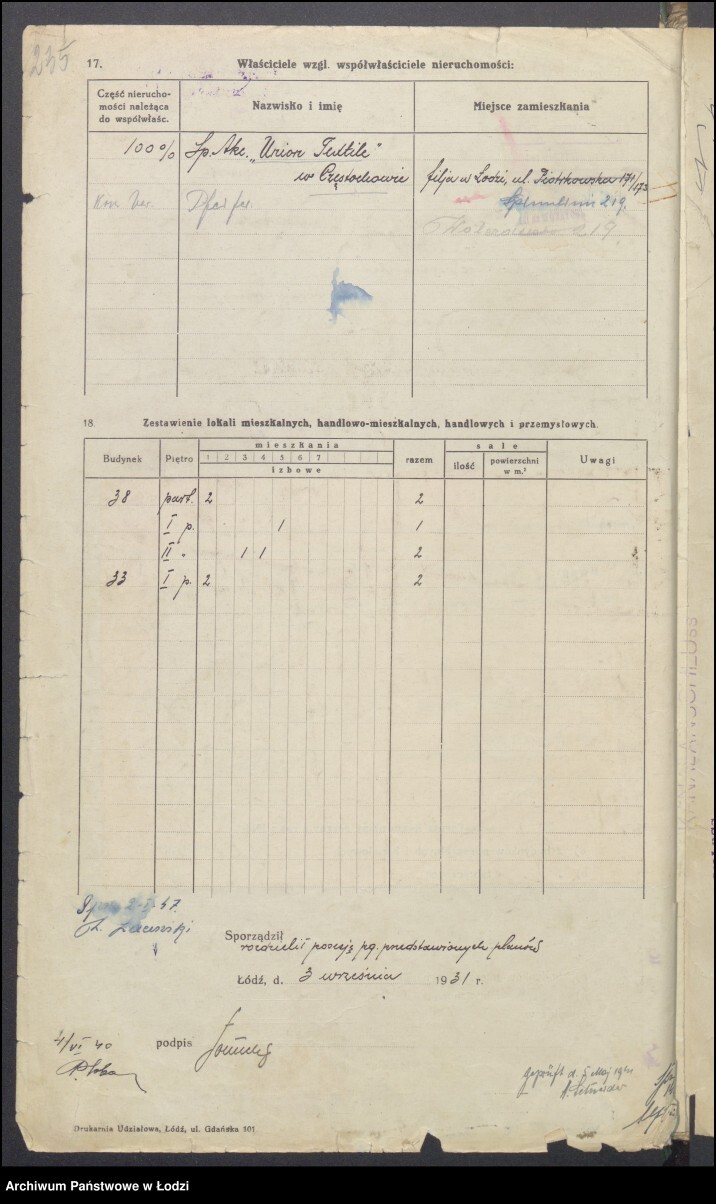 235
17. Właściciele wzgl. współwłaściciele nieruchomości:
Część nierucho-
mości należąca
do współwłaśc.
Nazwisko i imię
Miejsce zamieszkania
100% Sp. Akc. „Union Textile"
w Częstochowie filja w Łodzi, ul. Piotrkowska 171/173
Kom. Ver. 219
219
18. Zestawienie lokali mieszkalnych, handlowo-mieszkalnych, handlowych i przemysłowych.
Budynek Piętro mieszkania razem sale Uwagi
1 2 3 4 5 6 7 ilość powierzchni
w m.²
izbowe
38 part. 2 2
I p. 1 1
II " 1 1 2
33 I p. 2 2
47
Sporządził
rozdzielił posesję pg. przedstawionych planów
Łódź, d. 3 września 1931 r.
4/VI 40
podpis
geprüft d. 5 Maj
Drukarnia Udziałowa, Łódź, ul. Gdańska 101
Archiwum Państwowe w Łodzi